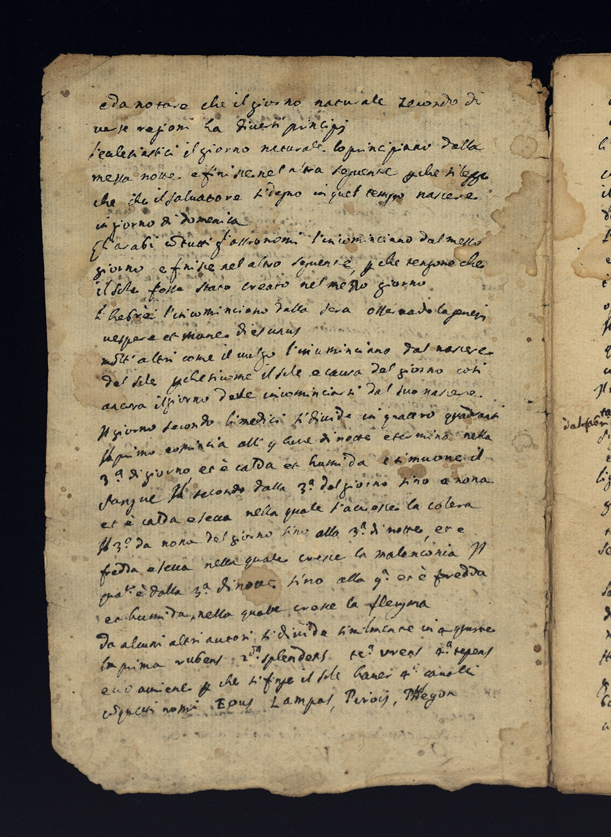 e da notare che il giorno naturale secondo di
verse ragioni ha diversi principj
l'ecclesiastici il giorno naturale lo principiano dalla
mezza notte e finisce nel altra seguente
che il salvatore si degno in quel tempo nascere
in giorno di domenica
Gl'arabi tutti gl'astronomi l'incominciano dal mezzo
giorno e finisce nel altro seguente che tengono che
il sole fosse stato creato nel mezzo giorno
l'hebrei l'incominciano dalla sera osservando la genesi
vespere et mane dies unus
molti altri come il vulgo l'incominciano dal nascere
del sole sicome il sole e causa del giorno cosi
ancora il giorno deve incominciarsi dal suo nascere
Il giorno secondo li medici si divide in quattro quadranti
Il primo comincia alli 9 hore di notte et termina nella
3.a di giorno et è calda et humida et si muove il
sangue Il secondo dalla 3.a del giorno sino a nona
et è calda e secca nella quale s'accresce la colera
Il 3.o da nona del giorno sino alla 3.a di notte, et e
fredda e secca nella quale cresce la malenconia Il
è dalla 3.a di notte sino alla 9.a et è fredda
et humida, nella quale cresce la flegma
da alcuni altri autori si divide similmente in 4
la prima rubens 2.da splendens urens 4.a tepens
e cio aviene che si finge il sole haver 4 cavalli
nomi Eous Lampas, Pirois, Phlegon